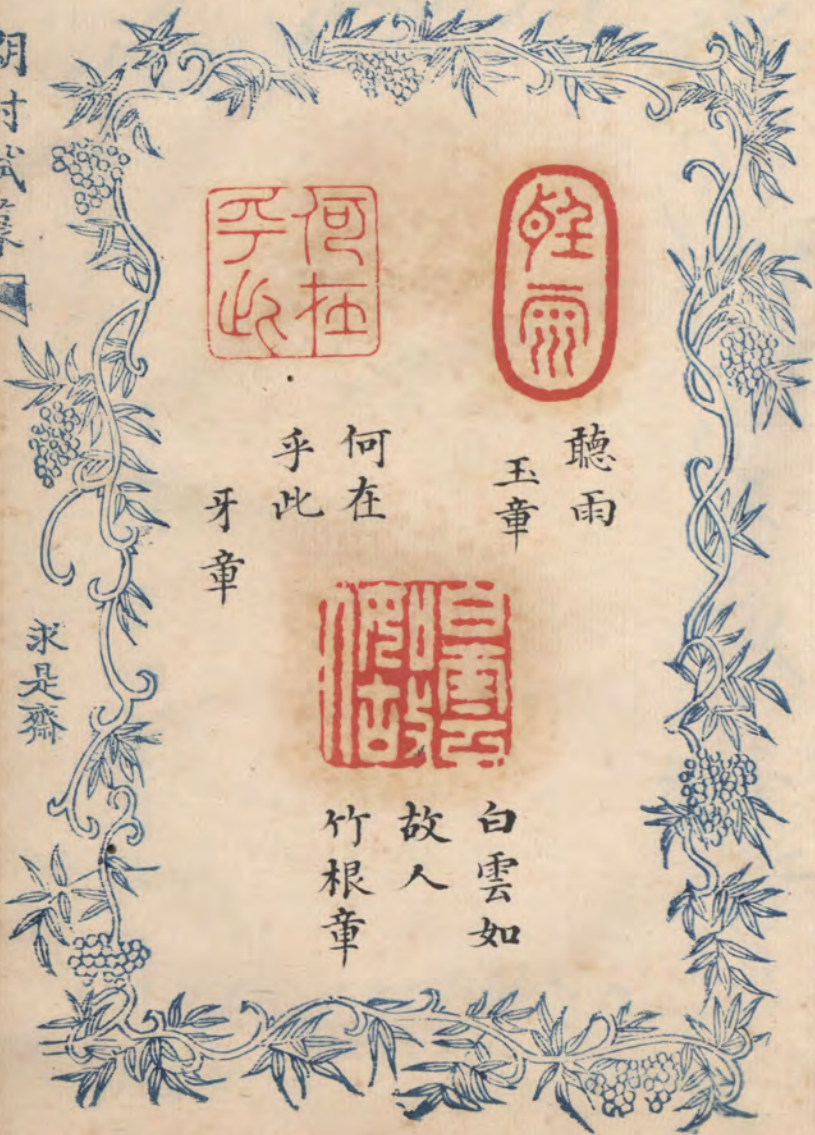 聽雨
聽雨
玉章
何在
乎此
何在
乎此
牙章
白雲
如故
人
白雲如
故人
竹根章
求是齋